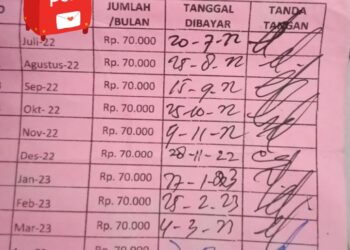 JUMLAH TANGGAL TANDA
/BULAN DIBAYAR TANGAN
Juli-22 Rp. 70.000 20-7-22
Agustus-22 Rp. 70.000 25-8-22
Sep-22 Rp. 70.000 15-9-22
Okt- 22 Rp. 70.000 25-10-22
Nov-22 Rp. 70.000 9-11-22
Des-22 Rp. 70.000 28-11-22
Jan-23 Rp. 70.000
Feb-23 Rp. 70.000 25-2-23
Mar-23 Rp. 70.000